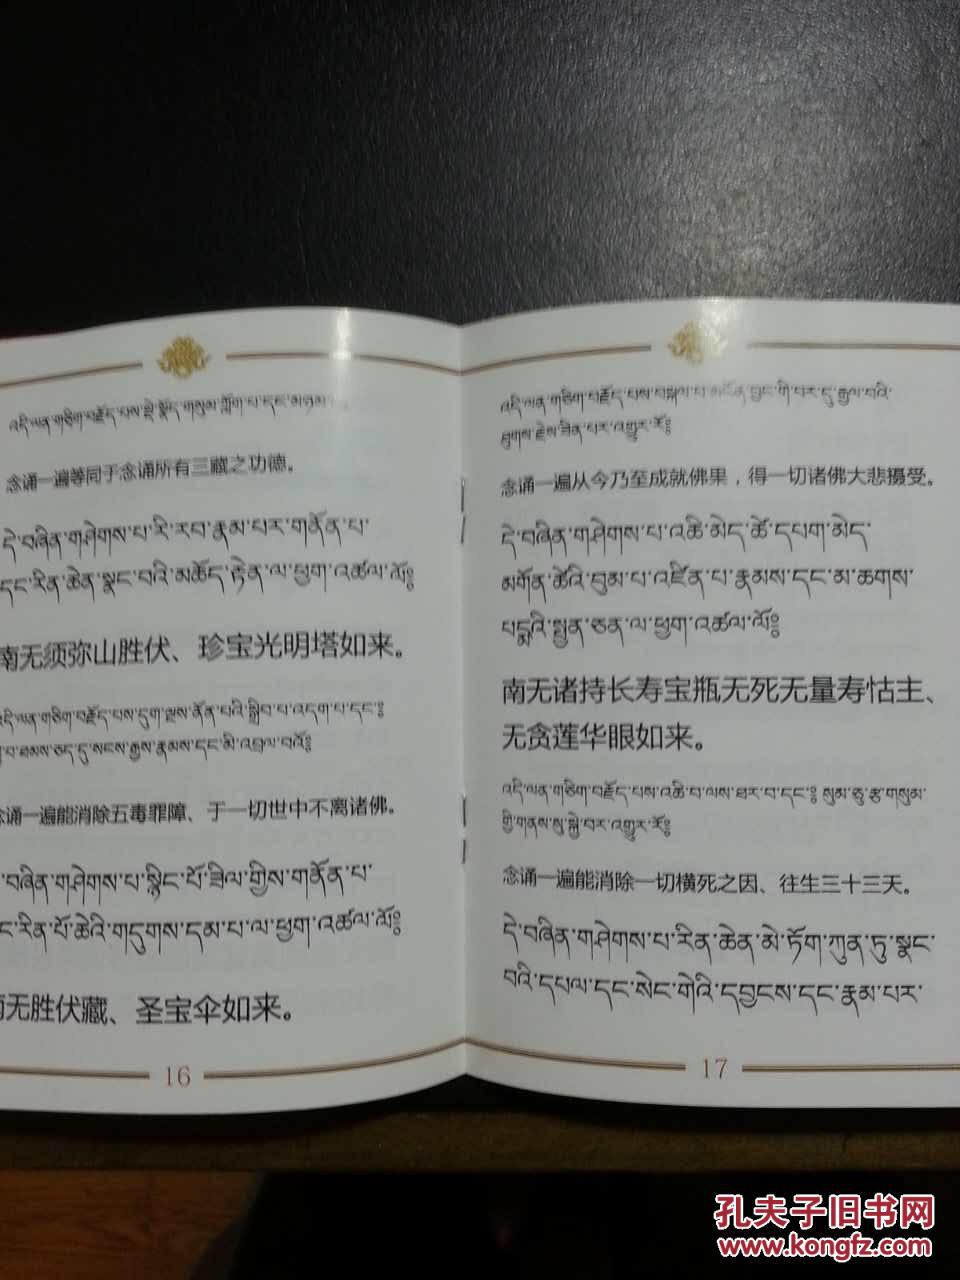 འདི་ལན་གཅིག་བརྗོད་པས་སྡེ་སྣོད་གསུམ་ཀློག་པ་དང་མཉམ
念诵一遍等同于念诵所有三藏之功德。
དེ་བཞིན་གཤེགས་པ་རི་རབ་རྣམ་པར་གནོན་པ་
དང་རིན་ཆེན་སྣང་བའི་མཆོད་རྟེན་ལ་ཕྱག་འཚལ་ལོ༔
南无须弥山胜伏、珍宝光明塔如来。
འདི་ལན་གཅིག་བརྗོད་པས་དུག་ལྔས་ནོན་པའི་སྒྲིབ་པ་འདག་པ་དང་༔
བ་ཐམས་ཅད་དུ་སངས་རྒྱས་རྣམས་དང་མི་འབྲལ་བའོ༔
念诵一遍能消除五毒罪障、于一切世中不离诸佛。
བཞིན་གཤེགས་པ་སྙིང་པོ་ཟིལ་གྱིས་གནོན་པ་
དང་རིན་པོ་ཆེའི་གདུགས་དམ་པ་ལ་ཕྱག་འཚལ་ལོ༔
南无胜伏藏、圣宝伞如来。
16
འདི་ལན་གཅིག་བརྗོད་པས་བསྐལ་པ་མངོན་བྱང་གི་བར་དུ་རྒྱལ་བའི་
ཐུགས་རྗེས་ཟིན་པར་འགྱུར་རོ༔
念诵一遍从今乃至成就佛果，得一切诸佛大悲摄受。
དེ་བཞིན་གཤེགས་པ་འཆི་མེད་ཚེ་དཔག་མེད་
མགོན་ཚེའི་བུམ་པ་འཛིན་པ་རྣམས་དང་མ་ཆགས་
པདྨའི་སྤྱན་ཅན་ལ་ཕྱག་འཚལ་ལོ༔
南无诸持长寿宝瓶无死无量寿怙主、
无贪莲华眼如来。
འདི་ལན་གཅིག་བརྗོད་པས་འཆི་བ་ལས་ཐར་བ་དང་༔ སུམ་ཅུ་རྩ་གསུམ་
གྱི་གནས་སུ་སྐྱེ་བར་འགྱུར་རོ༔
念诵一遍能消除一切横死之因、往生三十三天。
དེ་བཞིན་གཤེགས་པ་རིན་ཆེན་མེ་ཏོག་ཀུན་ཏུ་སྣང་
བའི་དཔལ་དང་སེང་གེའི་དབྱངས་དང་རྣམ་པར་
17
孔夫子旧书网
www.kongfz.com